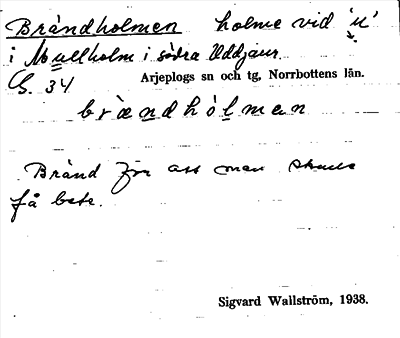 Brändholmen holme vid 'u'
i Mullholm i södra Uddjaur
G. 34 Arjeplogs sn och tg, Norrbottens län.
brændhólmen
Bränd för att man skulle
få bete.
Sigvard Wallström, 1938.